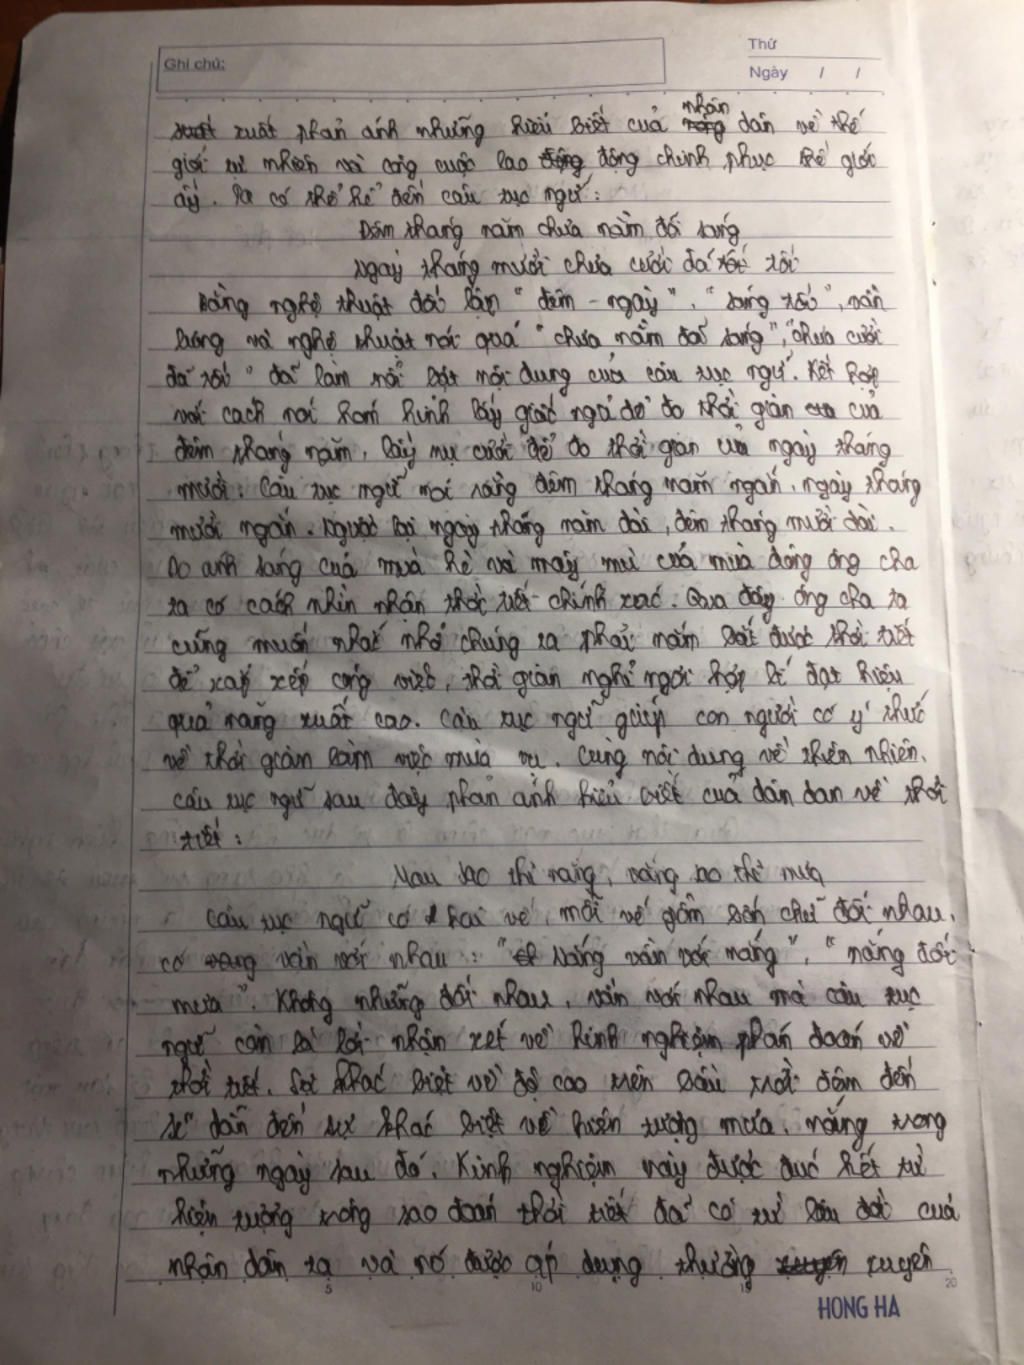 Ghi chú:
Thứ
Ngày / /
xuất phản ánh những hiểu biết của nhân dân về thế
giới tự nhiên và công cuộc lao động chinh phục thế giới
ấy. Ta có thể kể đến câu tục ngữ:
Đêm tháng năm chưa nằm đã sáng
Ngày tháng mười chưa cười đã tối
Bằng nghệ thuật đối lập "đêm - ngày", "sáng tối", vần
lưng và nghệ thuật nói quá "chưa nằm đã sáng", "chưa cười
đã tối" đã làm nổi bật nội dung của câu tục ngữ. Kết hợp
với cách nói hóm hỉnh lấy giấc ngủ để đo thời gian của
đêm tháng năm, lấy nụ cười để đo thời gian của ngày tháng
mười. Câu tục ngữ nói rằng đêm tháng năm ngắn, ngày tháng
mười ngắn. Ngược lại ngày tháng năm dài, đêm tháng mười dài.
Do ánh sáng của mùa hè và mây mù của mùa đông ông cha
ta có cách nhìn nhận thời tiết chính xác. Qua đây ông cha ta
cũng muốn nhắc nhở chúng ta phải nắm bắt được thời tiết
để xắp xếp công việc, thời gian nghỉ ngơi hợp lí đạt hiệu
quả năng xuất cao. Câu tục ngữ giúp con người có ý thức
về thời gian làm việc mùa vụ. Cùng nội dung về thiên nhiên,
câu tục ngữ sau đây phản ánh hiểu biết của dân dan về thời
tiết:
Mau sao thì nắng, vắng sao thì mưa
Câu tục ngữ có hai vế, mỗi vế gồm bốn chữ đối nhau,
có vần với nhau: "Nắng vần với nắng", "nắng đối
mưa". Không những đối nhau, vần với nhau mà câu tục
ngữ còn là lời nhận xét về kinh nghiệm phán đoán về
thời tiết. Sự khác biệt về độ cao trên bầu trời đêm đến
sẽ dẫn đến sự khác biệt về hiện tượng mưa, nắng trong
những ngày sau đó. Kinh nghiệm này được đúc kết từ
hiện tượng trông sao đoán thời tiết đã có từ lâu đời của
nhân dân ta và nó được áp dụng thường xuyên
5 10 15 20
HONG HA